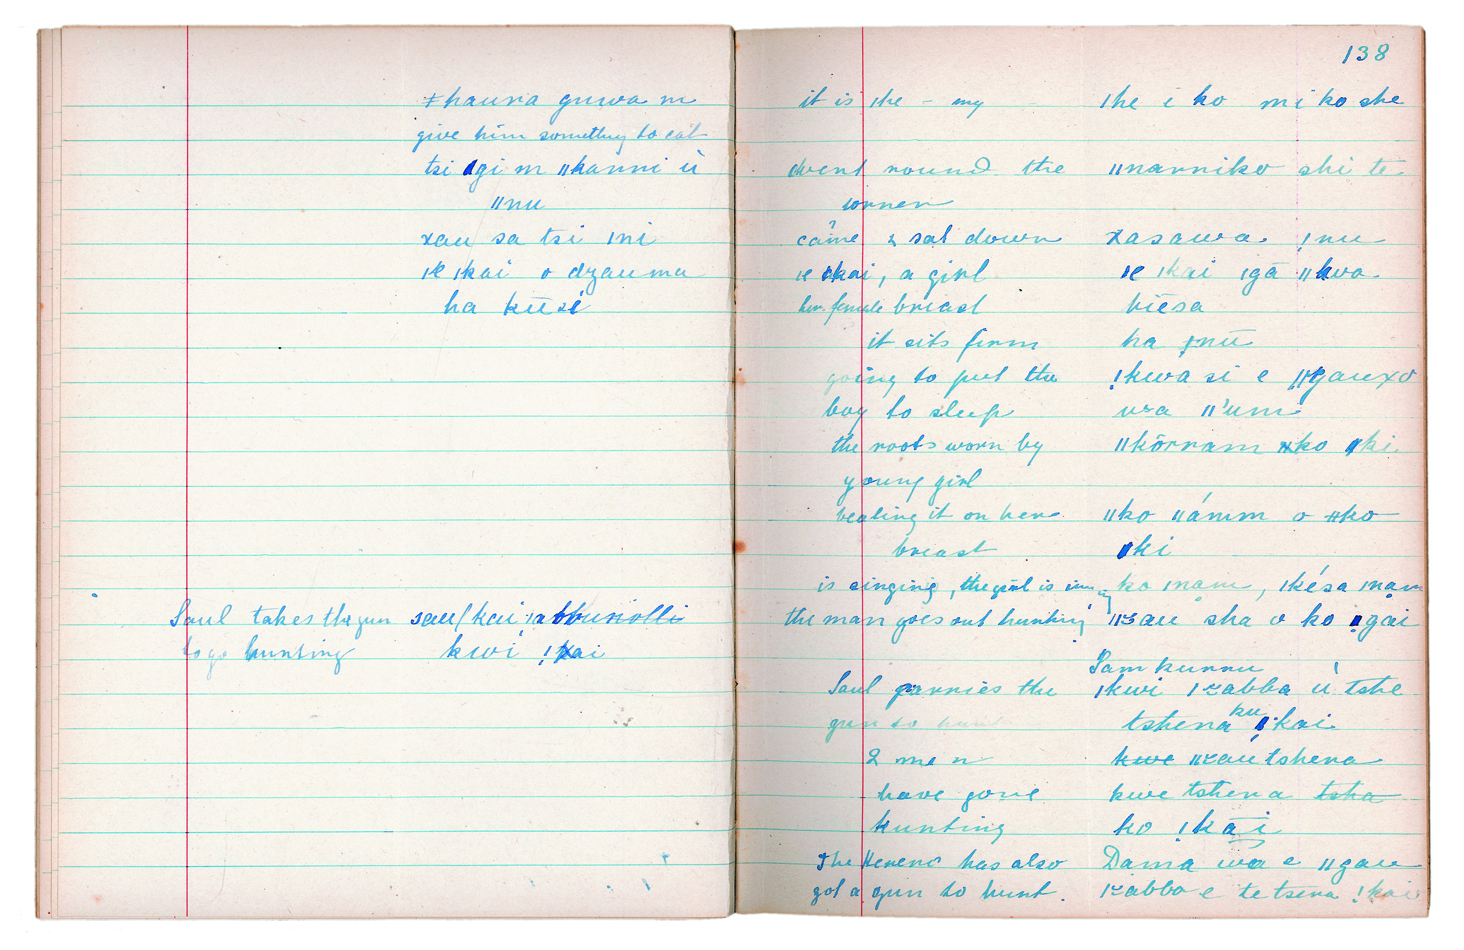 ǂhauna guwa m
give him something to eat
tsi ǀgi m ǁkanni ù
ǁnu
xau sa tsi ǀni
ǀe ǀkai o dzauma
ha kūsi
Saul takes the gun sau ǀkai
to go hunting kwi !kai
138
it is the - my ǀhe i ko mi ko she
went round the ǁnarniko shi te
corner
came & sat down xasawa ǃnu
ǀe ǀkai, a girl ǀe ǀkai ǀgā ǁkwa
her female breast biēsa
it sits firm ha ǃnū
going to put the ǃkwa si e ǁgauxo
boy to sleep ǁ'um
the roots worn by ǁkōrnam ko ǀki
young girl
beating it on her ǁko ǁámm o ǂko
breast ǀki
is singing, the girl is ko ǀnam, ǀkésa ǀnam
the man goes out hunting sha o ko ǃgai
Sam kunnu
Saul carries the ǀkwi abba ù tshe
gun to hunt tshena ku ǃkai
2 men kwe tshena
have gone kwe tshena tsha
hunting ko ǃkāi
The Herero has also Dama wa e ǁgau
got a gun to hunt. abba e te tsena ǃkai